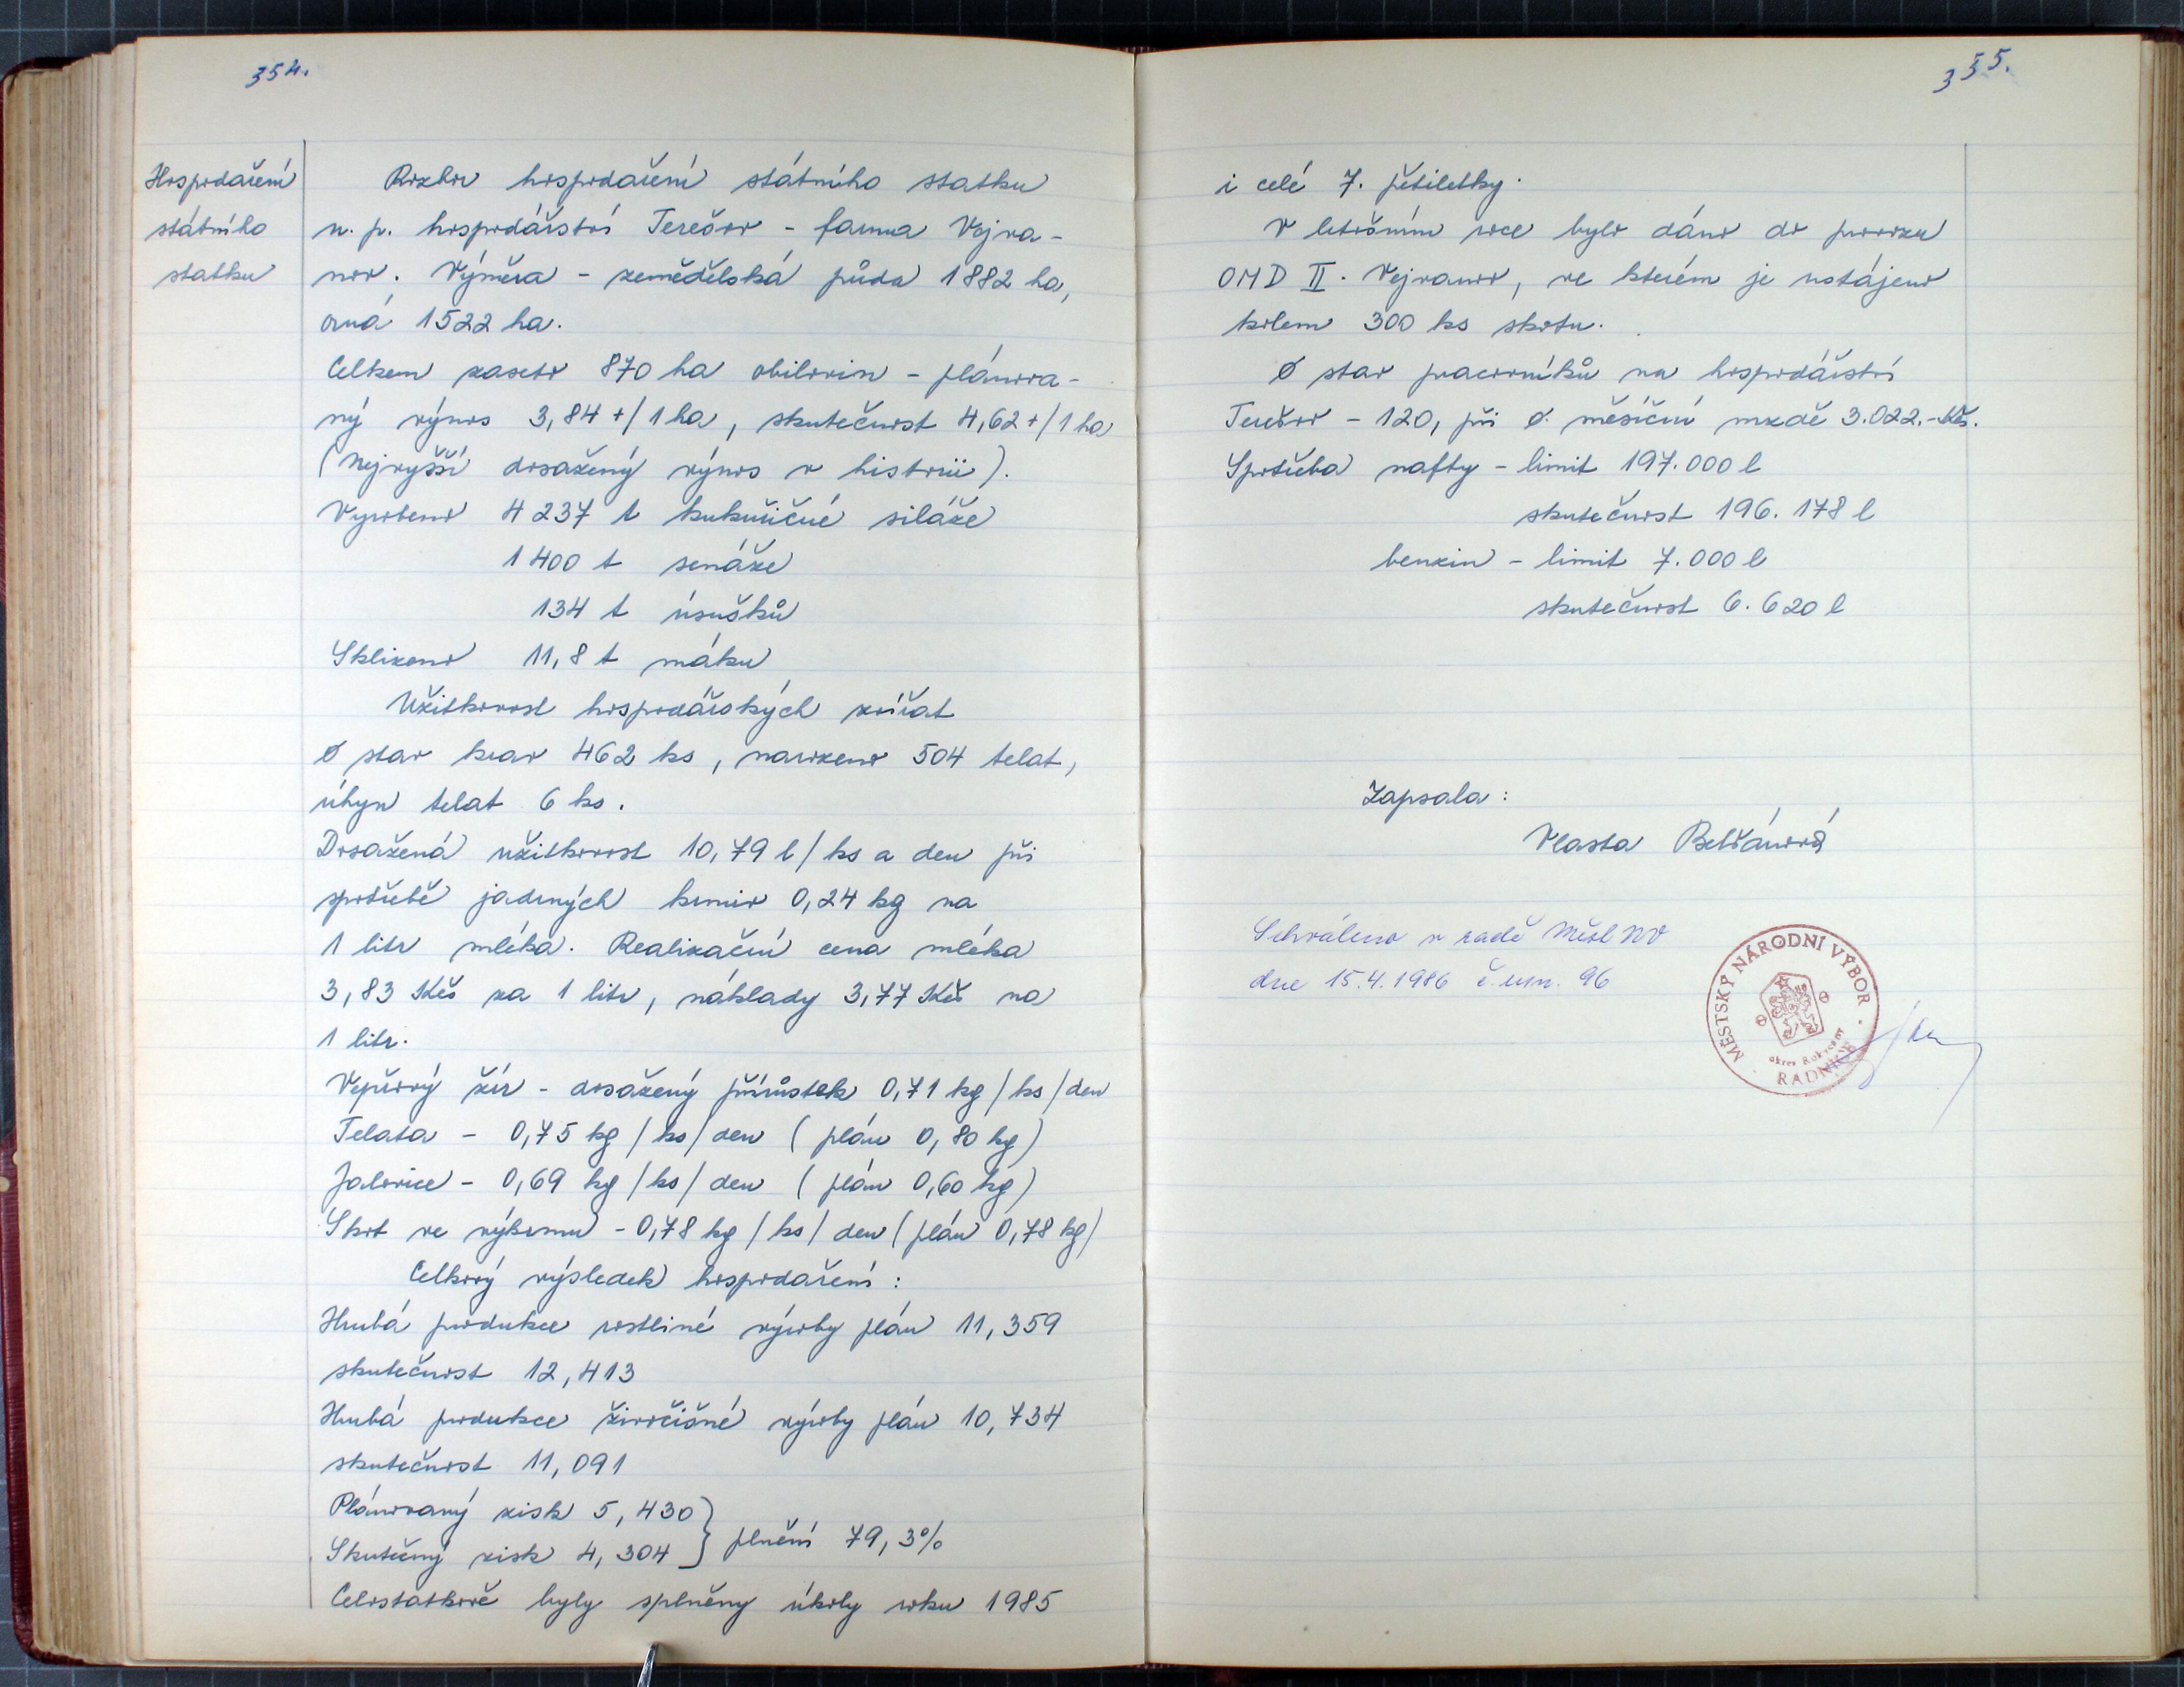 354.
Hospodaření
státního
statku
Rozbor hospodaření státního statku
n. p. hospodářství Terešov - farma Vojva-
nov. Výměra - zemědělská půda 1882 ha,
orná 1522 ha.
Celkem zaseto 870 ha obilovin - plánova-
ný výnos 3,84 t/1 ha, skutečnost 4,62 t/1 ha
(Nejvyšší dosažený výnos v historii).
Vyrobeno 4 237 t kukuřičné siláže
1 400 t senáže
134 t úsušků
Sklizeno 11,8 t máku
Užitkovost hospodářských zvířat
Ø stav krav 462 ks, narozeno 504 telat,
úhyn telat 6 ks.
Dosažená užitkovost 10,79 l/ks a den při
spotřebě jadrných krmiv 0,24 kg na
1 litr mléka. Realizační cena mléka
3,83 Kčs za 1 litr, náklady 3,77 Kčs na
1 litr.
Vepřový žír - dosažený přírůstek 0,71 kg/ks/den
Telata - 0,75 kg/ks/den (plán 0,80 kg)
Jalovice - 0,69 kg/ks/den (plán 0,60 kg)
Skot ve výkrmu - 0,78 kg/ks/den (plán 0,78 kg)
Celkový výsledek hospodaření:
Hrubá produkce rostliné výroby plán 11,359
skutečnost 12,413
Hrubá produkce živočišné výroby plán 10,734
skutečnost 11,091
Plánovaný zisk 5,430
Skutečný zisk 4,304 } plnění 79,3%
Celostatkově byly splněny úkoly roku 1985
355.
i celé 7. pětiletky.
V letošním roce bylo dáno do provozu
OMD II. Vejvanov, ve kterém je ustájeno
kolem 300 ks skotu.
Ø stav pracovníků na hospodářství
Terešov - 120, při Ø měsíční mzdě 3.022.- Kčs.
Spotřeba nafty - limit 197.000 l
skutečnost 196.178 l
benzin - limit 7.000 l
skutečnost 6.620 l
Zapsala:
Vlasta
Schváleno v radě MěstNV
dne 15.4.1986 č. usn. 96
MĚSTSKÝ NÁRODNÍ VÝBOR
okres Rokycany
RADNICE